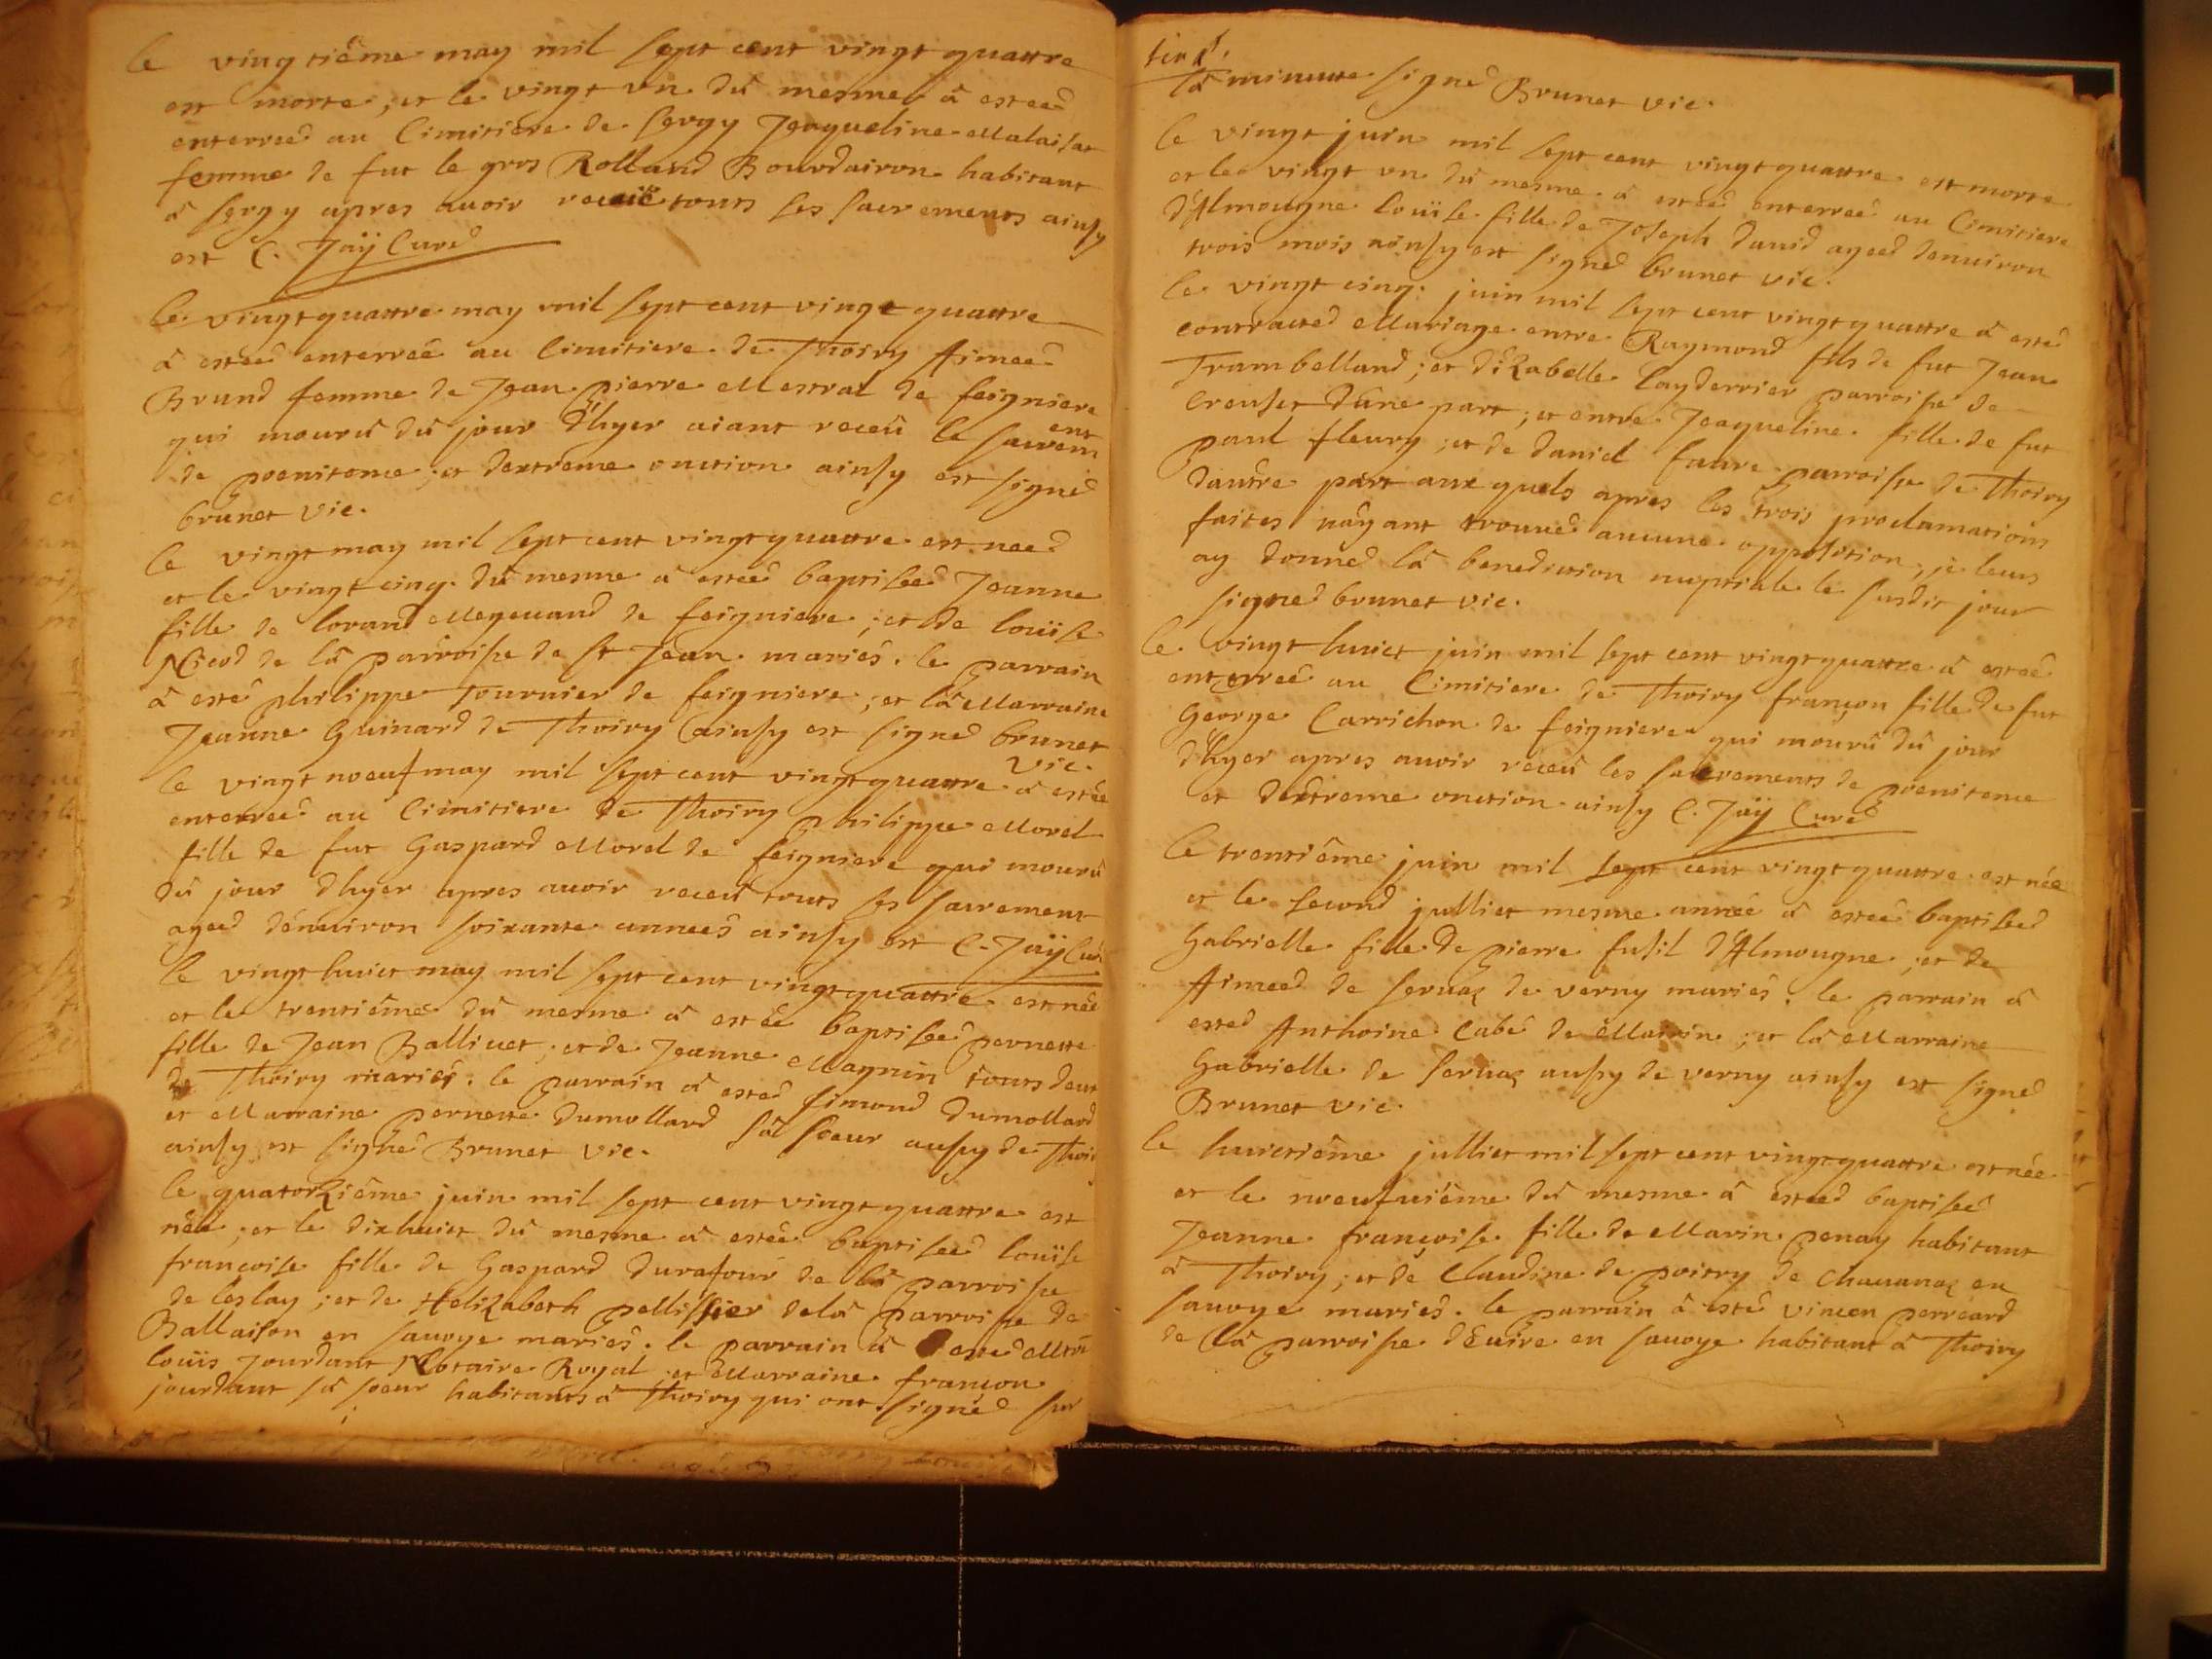 le vingtiême may mil sept cent vingt quattre
est morte, et le vingt un dû mesme â estéé
enterreé au Cimitiere de Sergy Jeaqueline Malaisat
femme de fut le gros Rolland Bourdairon habitant
â Sergy apres avoir receü touts ses sacrements ainsy
est C. Jaÿ Curé
le vingtquattre may mil sept cent vingt quattre
â estéé enterreé au Cimitiere de Thoiry Aimeé
Brund femme de Jean pierre Mestral de feigniere
qui mourû dû jour d'hyer aiant receû le sacrem
ent
de poenitence, et dextreme onction ainsy est signé
brunet vic.
le vingt may mil sept cent vingtquattre est neé
et le vingt cinq dû mesme â estéé baptiseé Jeanne
fille de lorand Megevand de feigniere, et de loüise
Nicod de lâ parroisse de st Jean mariés. le parrain
â esté philippe Tournier de feigniere, et lâ Marraine
Jeanne Guinard de Thoiry ainsy est signé brunet
vic.
le vingt noeuf may mil sept cent vingtquattre â estéé
enterreé au Cimitiere de Thoiry philippe Morel
fille de fut Gaspard Morel de feigniere qui mourû
dû jour d'hyer apres avoir receû touts ses sacrement
ageé d'environ soixante anneés ainsy est C. Jaÿ Curé
le vingt huict may mil sept cent vingtquattre est née
et le trentiême dû mesme â estéé baptiseé pernette
fille de Jean Ballivet, et de Jeanne Magnin tours deux
de Thoiry mariés. le parrain â esté simond Dumollard
et Marraine pernette Dumollard sâ soeur aussy de Thoiry
ainsy est signé Brunet vic.
le quatorziême juin mil sept cent vingtquattre est
néé, et le dixhuict dû mesme â estéé baptiseé loüise
françoise fille de Gaspard Durafour de lâ parroisse
de leslay, et de Helizabeth pellissier de lâ parroisse de
Ballaison en savoye mariés. le parrain â esté Mtre
loüis Jourdant Notaire Royal, et Marraine françon
jourdant sâ soeur habitants â Thoiry qui ont signé sur
lâ minutte signé Brunet vic.
le vingt juin mil sept cent vingtquattre est morte
et le vingt un dû mesme â estéé enterreé au Cimitiere
d'Almougne loüise fille de Joseph david ageé denviron
trois mois ainsy est signé brunet vic.
le vingt cinq juin mil sept cent vingtquattre â esté
contracté Mariage entre Raymond fils de fut Jean
Trambelland, et d'izabelle layderrier parroisse de
Creuset d'une part, et entre Jeaqueline fille de fut
paul fleury, et de daniel favre parroisse de Thoiry
dautre part aux quels apres les trois proclamations
faites nâyant trouvé aucune opposition, je leurs
ay donné lâ benediction nuptiale le susdit jour
signé brunet vic.
le vingt huict juin mil sept cent vingtquattre â estéé
enterreé au Cimitiere de Thoiry françon fille de fut
George Carrichon de feigniere qui mourû dû jour
d'hyer apres avoir receû les sacrements de poenitence
et dextreme onction ainsy C. Jaÿ Curé
le trentiême juin mil sept cent vingtquattre est née
et le second julliet mesme année â estéé baptiseé
Gabrielle fille de pierre fusil d'Almougne, et de
Aimeé de servaz de verny mariés. le parrain â
esté Anthoine Cabé de Mairin, et lâ Marraine
Gabrielle de servaz aussy de verny ainsy est signé
Brunet vic.
le huictiême julliet mil sept cent vingtquattre est née
et le noeufviême dû mesme â estéé baptiseé
Jeanne françoise fille de Marin penay habitant
â Thoiry, et de Claudine de poitry de chavanaz en
savoye mariés. le parrain â esté vincen perréard
de lâ parroisse d'Evire en savoye habitant â Thoiry